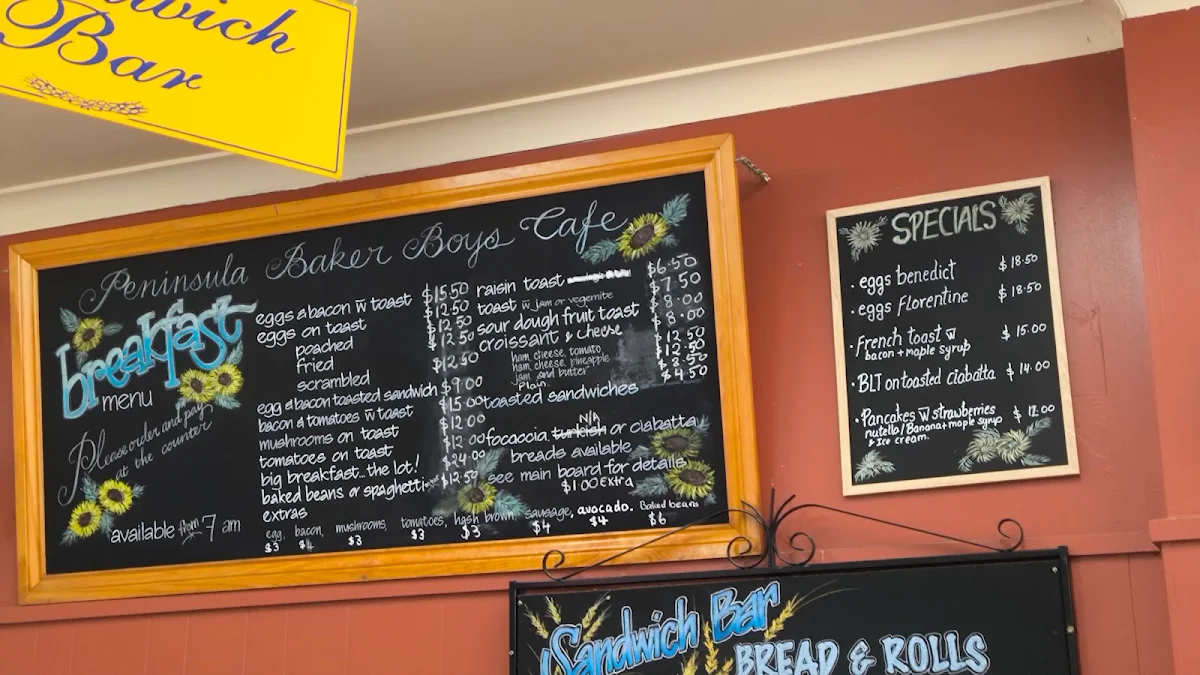 Bar
Peninsula Baker Boys Cafe
breakfast
menu
Please order and pay
at the counter
available from 7 am
eggs & bacon w toast $15.50
eggs on toast $12.50
poached $12.50
fried $12.50
scrambled
egg & bacon toasted sandwich $9.00
bacon & tomatoes w toast $15.00
mushrooms on toast $12.00
tomatoes on toast $12.00
big breakfast...the lot! $24.00
baked beans or spaghetti $12.50
extras
egg, bacon, mushrooms, tomatoes, hash brown, sausage, avocado. Baked beans
$3 $4 $3 $3 $3 $4 $4 $6
raisin toast $6.50
toast w jam or vegemite $7.50
sour dough fruit toast $8.00
croissant & cheese $8.00
ham, cheese, tomato $12.50
ham, cheese, pineapple $12.50
jam and butter $8.50
Plain $4.50
toasted sandwiches
N/A
focaccia, turkish or ciabatta
breads available
see main board for details
$1.00 Extra
SPECIALS
• eggs benedict $18.50
• eggs florentine $18.50
• French toast w $15.00
bacon + maple syrup
• BLT on toasted ciabatta $14.00
• Pancakes w strawberries $12.00
nutello/Banana + maple syrup
+ Ice cream.
Sandwich Bar
BREAD & ROLLS